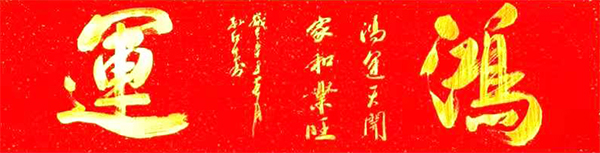 鴻
鴻運天開
家和業旺
運